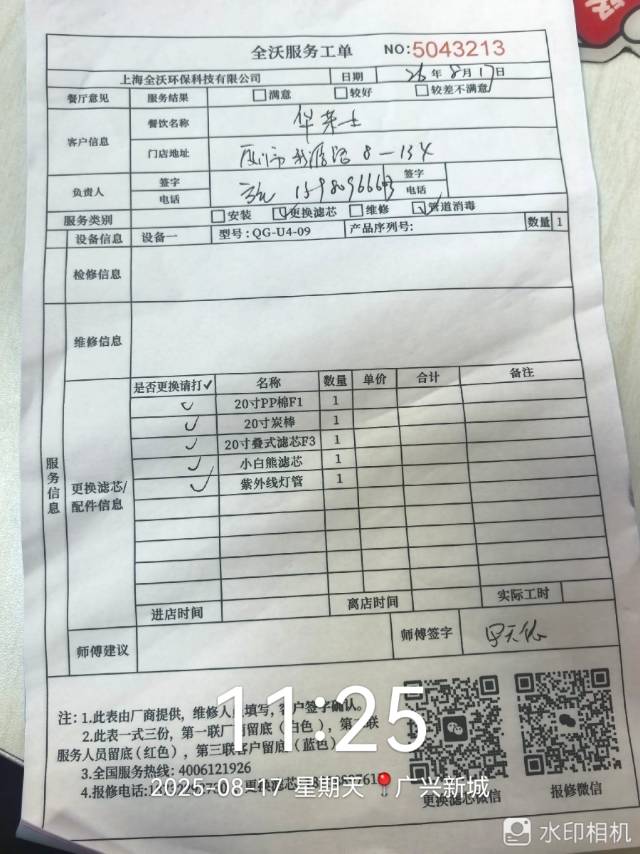 全沃服务工单 NO:5043213
上海全沃环保科技有限公司 日期 年8月17日
餐厅意见 服务结果 满意 较好 较差不满意
客户信息 餐饮名称 华莱士
门店地址 8-134
负责人 签字 签字
电话 电话
服务类别 安装 更换滤芯 维修 管道消毒
设备信息 设备一 型号:QG-U4-09 产品序列号: 数量 1
检修信息
维修信息
服务信息
更换滤芯/配件信息
是否更换请打✓ 名称 数量 单价 合计 备注
✓ 20寸PP棉F1 1
✓ 20寸炭棒 1
✓ 20寸叠式滤芯F3 1
✓ 小白熊滤芯 1
✓ 紫外线灯管 1
进店时间 离店时间 实际工时
师傅建议 师傅签字
注:1.此表由厂商提供,维修人员填写,客户签字确认。
2.此表一式三份,第一联厂商留底(白色),第二联
服务人员留底(红色),第三联客户留底(蓝色)
3.全国服务热线:4006121926
4.报修电话:
更换滤芯微信 报修微信
11:25
2025-08-17 星期天 广兴新城
水印相机